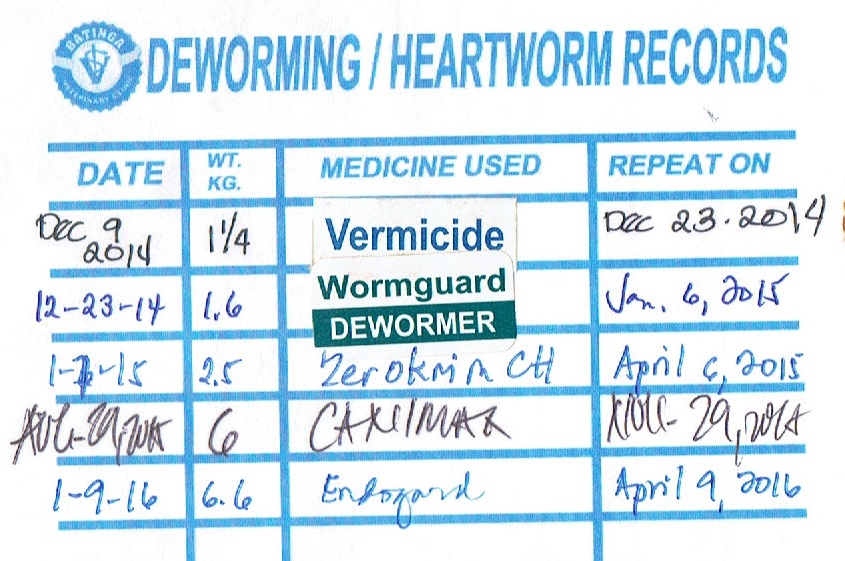 BATINGA
VETERINARY CLINIC
DEWORMING / HEARTWORM RECORDS
DATE WT. KG. MEDICINE USED REPEAT ON
DEC 9 2014 1 1/4 Vermicide DEC 23. 2014
12-23-14 1.6 Wormguard DEWORMER Jan. 6, 2015
1-7-15 2.5 Zerokmin CH April 6, 2015
AUG-29,2015 6 CANIMAX NOV- 29, 2015
1-9-16 6.6 Endogard April 9, 2016